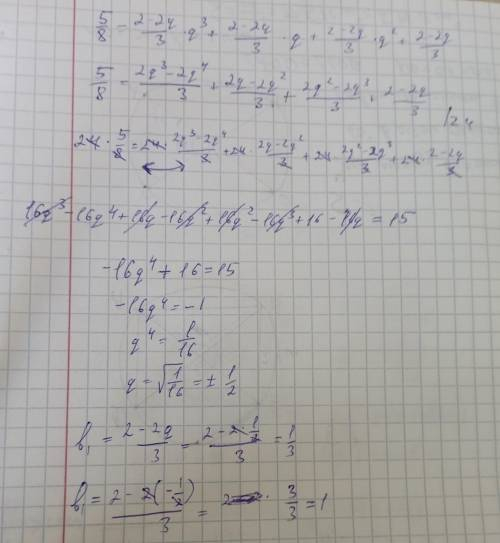 5/8 = (2-2q)/3 · q³ + (2-2q)/3 · q + (2-2q)/3 · q² + (2-2q)/3
5/8 = (2q³-2q⁴)/3 + (2q-2q²)/3 + (2q²-2q³)/3 + (2-2q)/3 /24
24 · 5/8 = 24 · (2q³-2q⁴)/3 + 24 · (2q-2q²)/3 + 24 · (2q²-2q³)/3 + 24 · (2-2q)/3
16q³ - 16q⁴ + 16q - 16q² + 16q² - 16q³ + 16 - 16q = 15
-16q⁴ + 16 = 15
-16q⁴ = -1
q⁴ = 1/16
q = √(1/16) = ± 1/2
b₁ = (2-2q)/3 = (2-2·1/2)/3 = 1/3
b₁ = (2-2(-1/2))/3 = 3/3 = 1